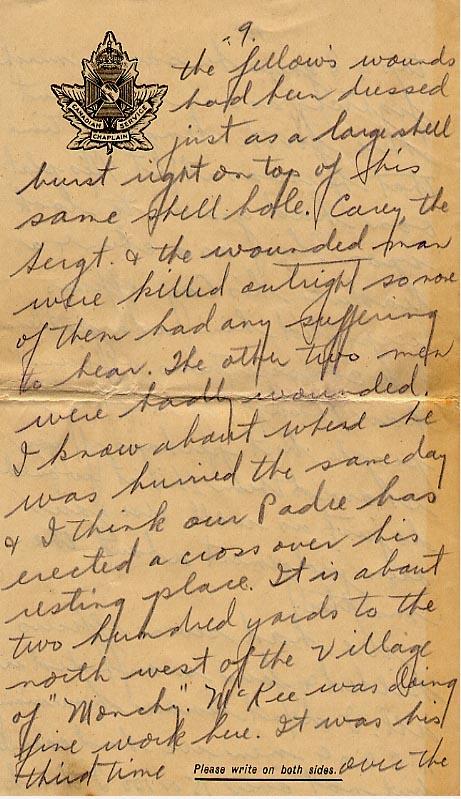 9.
CANADIAN CHAPLAIN SERVICE
the fellow's wounds
had been dressed
just as a large shell
burst right on top of this
same shell hole. Carey, the
Sergt. & the wounded man
were killed outright so none
of them had any suffering
to bear. The other two men
were badly wounded.
I know about where he
was burried the same day
& I think our Padre has
erected a cross over his
resting place. It is about
two hundred yards to the
north west of the Village
of "Monchy". McKee was doing
fine work here. It was his
third time over the
Please write on both sides.